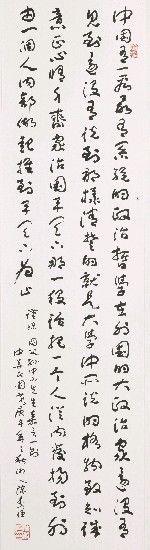 中國有一段最有系統的政治哲學在外國的大政治家還沒有
見到還沒有說到那樣清楚的就是大學中所說的格物致知誠
意正心修身齊家治國平天下那一段話把一个人從內發揚到外
由一個人內部做起推到平天下為止
謹錄 國父孫中山先生嘉言一則
中華民國庚午年之秋 陳